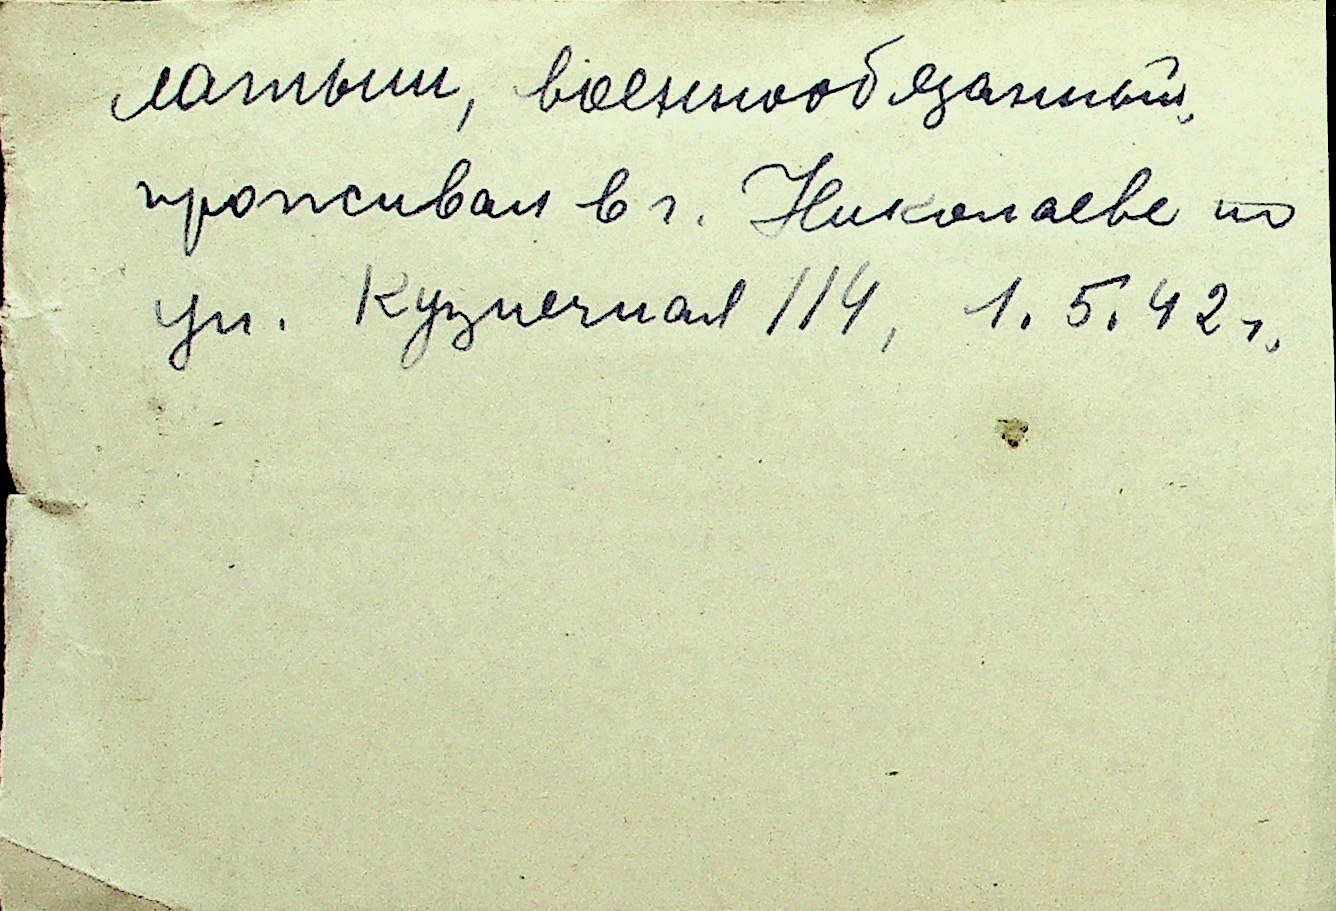 латыш, военнообязанный,
проживал в г. Николаеве по
ул. Кузнечная 114, 1.5.42 г.